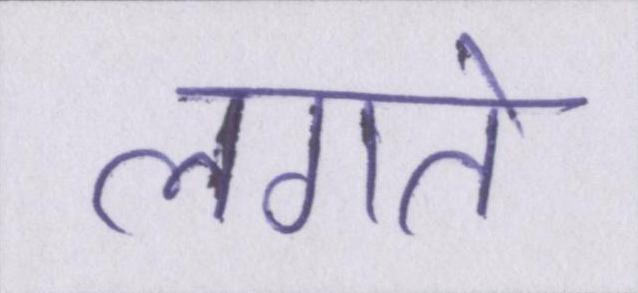 लगते